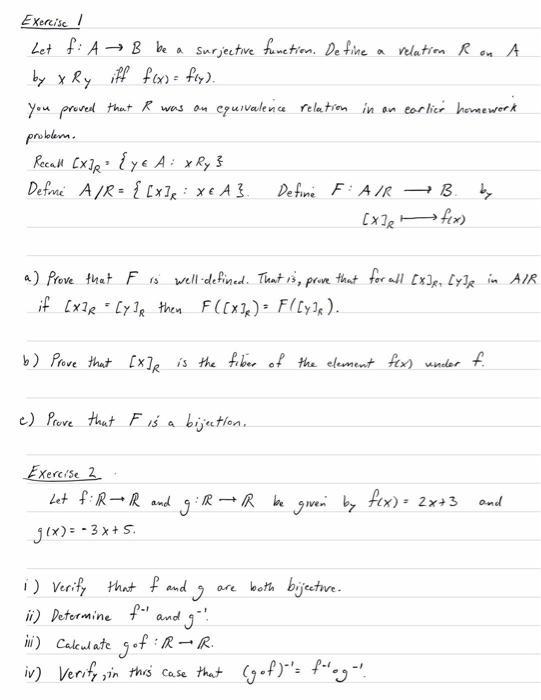 Exercise 1
Let f: A → B be a surjective function. Define a relation R on A
by x R y iff f(x) = f(y).
You proved that R was an equivalence relation in an earlier homework
problem.
Recall [x]_R = { y ∈ A : x R y }
Define A/R = { [x]_R : x ∈ A }. Define F : A/R → B. by
[x]_R ⟼ f(x)
a) Prove that F is well-defined. That is, prove that for all [x]_R, [y]_R in A/R
if [x]_R = [y]_R then F([x]_R) = F([y]_R).
b) Prove that [x]_R is the fiber of the element f(x) under f.
c) Prove that F is a bijection.
Exercise 2
Let f: ℝ → ℝ and g: ℝ → ℝ be given by f(x) = 2x+3 and
g(x) = -3x+5.
i) Verify that f and g are both bijective.
ii) Determine f⁻¹ and g⁻¹.
iii) Calculate g∘f : ℝ → ℝ.
iv) Verify, in this case that (g∘f)⁻¹ = f⁻¹∘g⁻¹.